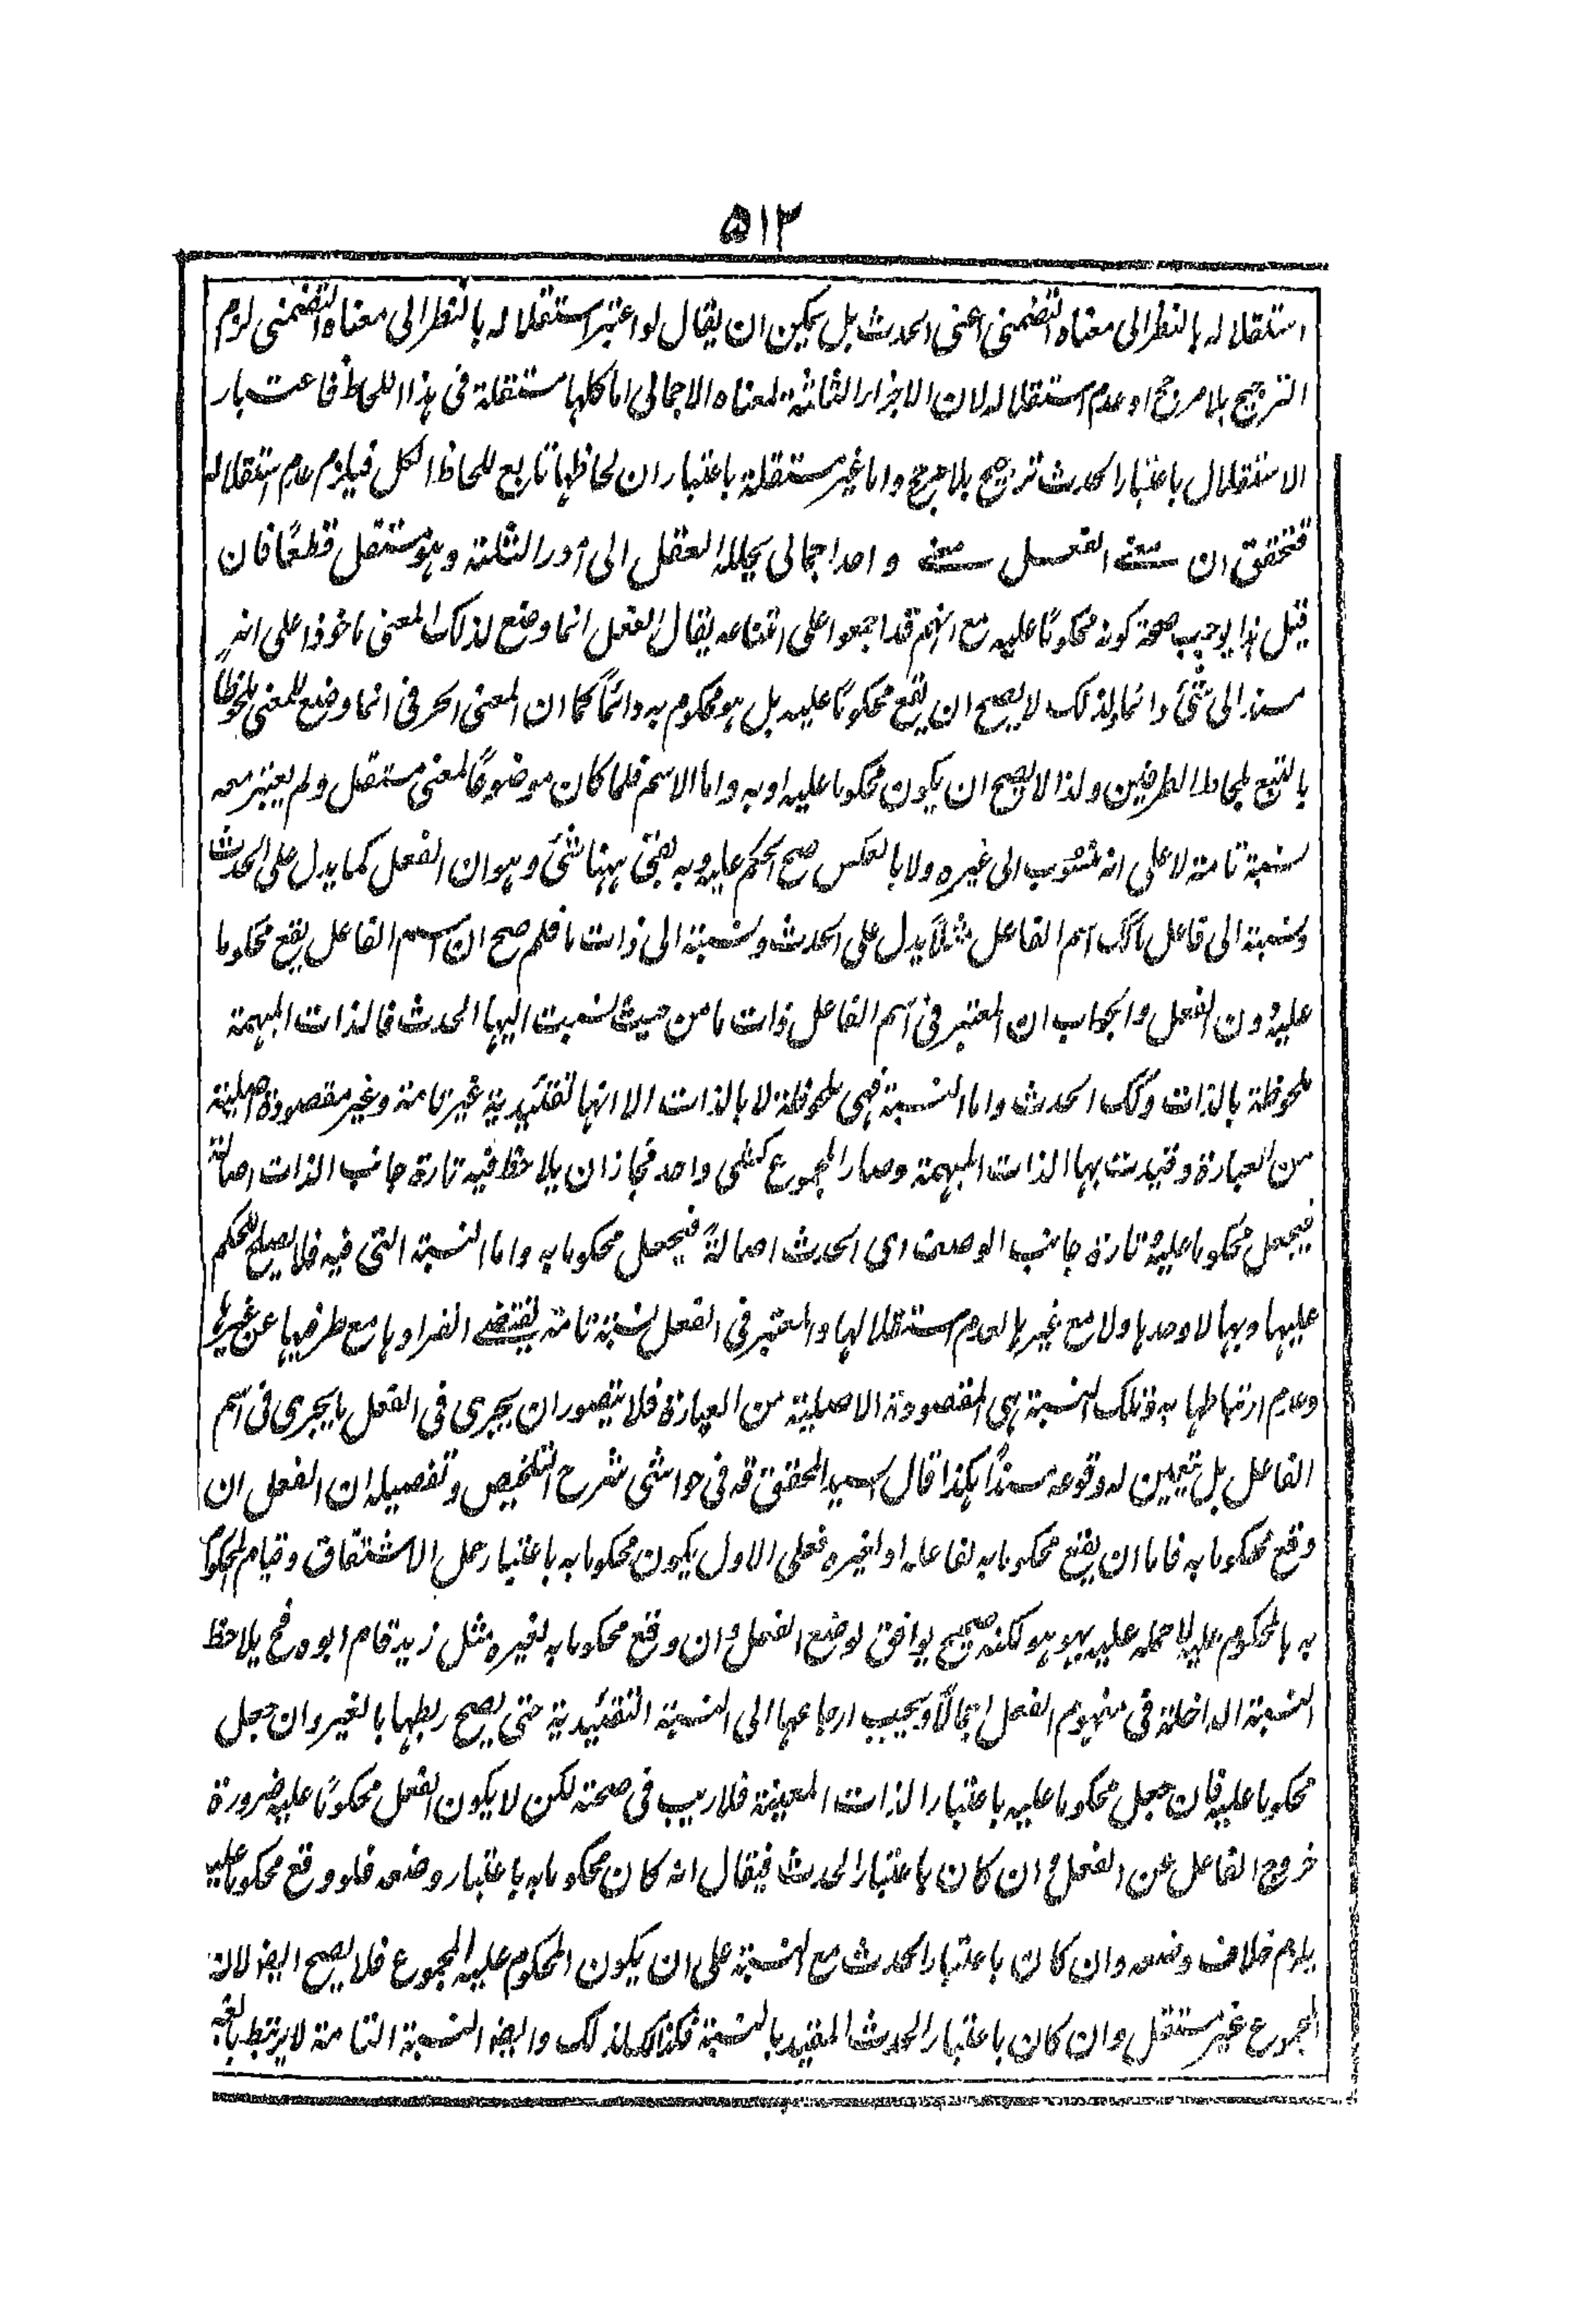 ٥١٣
استقلاله بالنظر الى معناه التضمنى اعنى الحدث بل يمكن ان يقال لو اعتبر استقلاله بالنظر الى معناه التضمنى لزم
الترجيح بلا مرجح او عدم استقلاله لان الاجزاء الثلثة لمعناه الاجمالى اما كلها مستقلة فى هذا اللحاظ فاعتبار
الاستقلال باعتبار الحدث ترجيح بلا مرجح واما غير مستقلة باعتبار ان لحاظها تابع للحاظ الكل فيلزم عدم استقلاله
فتحقق ان معنے الفعل معنے واحد اجمالى يحلله العقل الى امور الثلثة وهو مستقل قطعًا فان
قيل هذا يوجب صحة كونه محكومًا عليه مع انهم قد اجمعوا على امتناعه يقال الفعل انما وضع لذلك المعنى ماخوذا على انه
مسند الى شئ دائما ولذلك لا يصح ان يقع محكومًا عليه بل هو محكوم به دائمًا كما ان المعنى الحرفى انما وضع للمعنى ملحوظًا
بالتبع للحاظ الطرفين ولذا لا يصح ان يكون محكوما عليه او به واما الاسم فلما كان موضوعًا لمعنى مستقل ولم يعتبر معه
نسبة تامة لا على انه منسوب الى غيره ولا بالعكس صح الحكم عليه وبه بقى ههنا شئ وهو ان الفعل كما يدل على الحدث
ونسبة الى فاعل ما كك اسم الفاعل مثلاً يدل على الحدث ونسبة الى ذات ما فلم صح ان اسم الفاعل يقع محكوما
عليه دون الفعل والجواب ان المعتبر فى اسم الفاعل ذات ما من حيث نسبت اليها الحدث فالذات المبهمة
ملحوظة بالذات وكك الحدث واما النسبة فهى ملحوظة لا بالذات الا انها تقئيدية غير تامة وغير مقصودة اصلية
من العبارة وقيدت بها الذات المبهمة وصار المجموع كشئ واحد فجاز ان يلاحظ فيه تارة جانب الذات اصالة
فيجعل محكوما عليه وتارة جانب الوصف اى الحدث اصالةً فيجعل محكوما به واما النسبة التى فيه فلا يصلح للحكم
عليها وبها لا وحدها ولا مع غيرها لعدم استقلالها والمعتبر فى الفعل نسبة تامة يقتضے انفرادها مع طرفيها عن غيرها
وعدم ارتباطها به وتلك النسبة هى المقصودة الاصلية من العبارة فلا يتصور ان يجرى فى الفعل ما يجرى فى اسم
الفاعل بل يتعين له وقوعه مسندًا هكذا قال السيد المحقق قه فى حواشى شرح التلخيص وتفصيله ان الفعل ان
وقع محكوما به فاما ان يقع محكوما به لفاعله او لغيره فعلى الاول يكون محكوما به باعتبار حمل الاشتقاق وقيام المحكوم
به بالمحكوم عليه لا حمله عليه بهو هو لكنه صحيح يوافق لوضع الفعل وان وقع محكوما به لغيره مثل زيد قام ابوه فح يلاحظ
النسبة الداخلة فى مفهوم الفعل اجمالاً ويجب ارجاعها الى النسبة التقئيدية حتى يصح ربطها بالغير وان جعل
محكوما عليه فان جعل محكوما عليه باعتبار الذات المعينة فلا ريب فى صحته لكن لا يكون الفعل محكومًا عليه ضرورة
خروج الفاعل عن الفعل وان كان باعتبار الحدث فيقال انه كان محكوما به باعتبار وضعه فلو وقع محكوما عليه
يلزم خلاف وضعه وان كان باعتبار الحدث مع النسبة على ان يكون المحكوم عليه المجموع فلا يصح ايضا لان
المجموع غير مستقل وان كان باعتبار الحدث المقيد بالنسبة لذلك وايضا النسبة التامة لا يرتبط بالغير